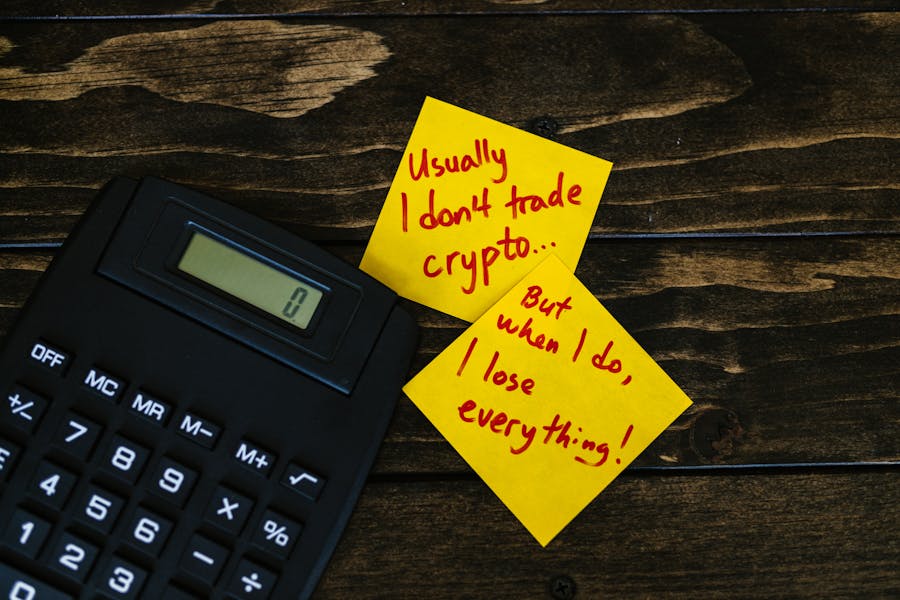 Usually
I don't trade
crypto...
But
when I do,
I lose
everything!
0
OFF
MC
MR
M-
M+
√
+/-
7
8
9
×
%
4
5
6
-
÷
1
2
3
0